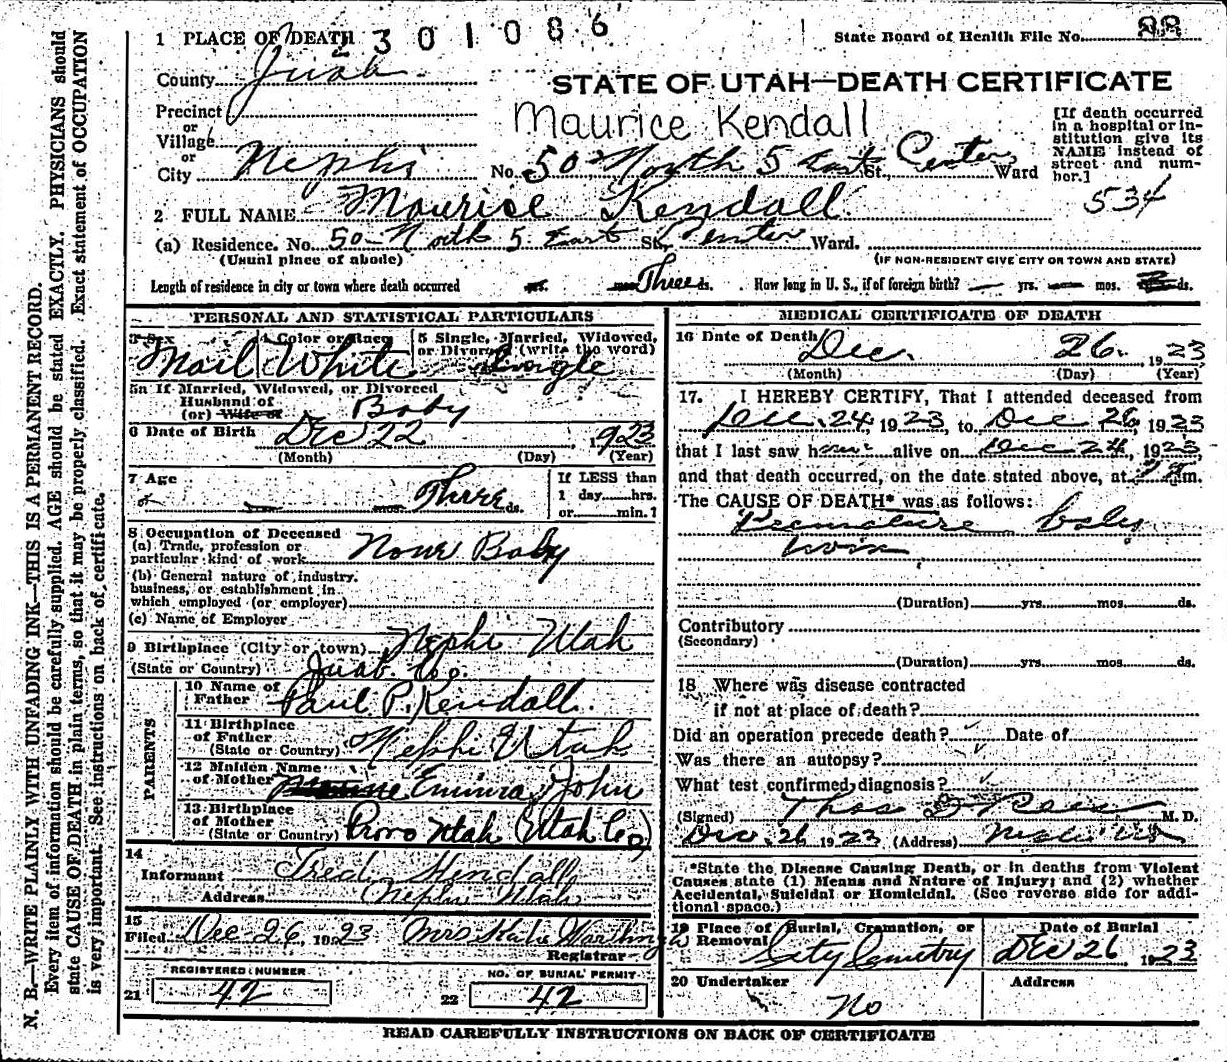 1 PLACE OF DEATH 301086 State Board of Health File No. 88
County Juab
STATE OF UTAH—DEATH CERTIFICATE
Precinct
or
Village
or
Maurice Kendall
[If death occurred in a hospital or institution give its NAME instead of street and number.]
City Nephi No. 50 North 5 East St., Center Ward
534
2 FULL NAME Maurice Kendall
(a) Residence. No. 50 North 5 East St. Center Ward.
(Usual place of abode) (IF NON-RESIDENT GIVE CITY OR TOWN AND STATE)
Length of residence in city or town where death occurred yrs. mos. Three ds. How long in U. S., if of foreign birth? — yrs. — mos. ds.
PERSONAL AND STATISTICAL PARTICULARS
3 Sex 4 Color or Race 5 Single, Married, Widowed, or Divorced (write the word)
Mail White Single
5a If Married, Widowed, or Divorced
Husband of
(or) Wife of Baby
6 Date of Birth Dec 22, 1923
(Month) (Day) (Year)
7 Age Three ds.
mos.
If LESS than
1 day......hrs.
or......min.?
8 Occupation of Deceased
(a) Trade, profession or
particular kind of work None Baby
(b) General nature of industry.
business, or establishment in
which employed (or employer)
(c) Name of Employer
9 Birthplace (City or town) Nephi Utah
(State or Country) Juab Co.
PARENTS
10 Name of
Father Paul P. Kendall.
11 Birthplace
of Father
(State or Country) Nephi Utah
12 Maiden Name
of Mother Emma John
13 Birthplace
of Mother
(State or Country) Provo Utah (Utah Co)
14
Informant Fred Kendall
Address Nephi Utah
15
Filed Dec 26, 1923 Mrs Katie
Registrar
REGISTERED NUMBER NO. OF BURIAL PERMIT
21 42 22 42
MEDICAL CERTIFICATE OF DEATH
16 Date of Death Dec. 26. 1923
(Month) (Day) (Year)
17. I HEREBY CERTIFY, That I attended deceased from
Dec. 24 1923, to Dec 26, 1923
that I last saw him alive on Dec 24, 1923,
and that death occurred, on the date stated above, at m.
The CAUSE OF DEATH* was as follows:
Premature baby
twin
(Duration) yrs. mos. ds.
Contributory
(Secondary)
(Duration) yrs. mos. ds.
18 Where was disease contracted
if not at place of death?
Did an operation precede death? Date of
Was there an autopsy?
What test confirmed diagnosis?
(Signed) Thos M. D.
Dec. 26 1923 (Address) Nephi
*State the Disease Causing Death, or in deaths from Violent
Causes state (1) Means and Nature of Injury; and (2) whether
Accidental, Suicidal or Homicidal. (See reverse side for additional space.)
19 Place of Burial, Cramation, or
Removal
City Cemetry
Date of Burial
Dec 26 1923
20 Undertaker No
Address
READ CAREFULLY INSTRUCTIONS ON BACK OF CERTIFICATE
N. B.—WRITE PLAINLY WITH UNFADING INK—THIS IS A PERMANENT RECORD.
Every item of information should be carefully supplied. AGE should be stated EXACTLY. PHYSICIANS should
state CAUSE OF DEATH in plain terms, so that it may be properly classified. Exact statement of OCCUPATION
is very important. See instructions on back of certificate.